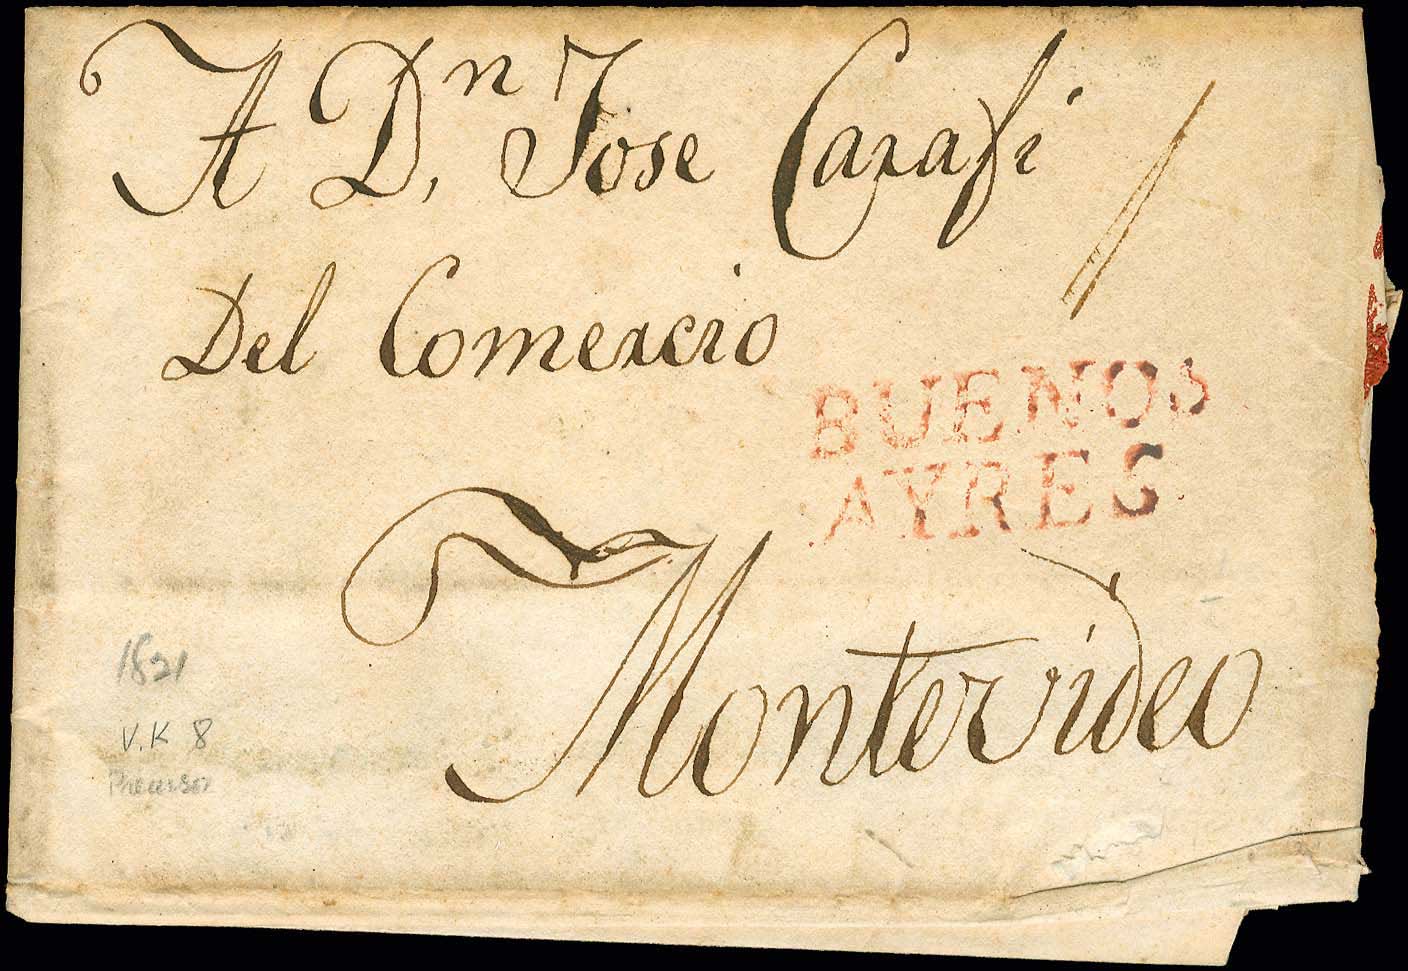 A D,ⁿ Jose Carafi
Del Comercio
BUENOS
AYRES
Montevideo
1821
V.K 8
Precursor